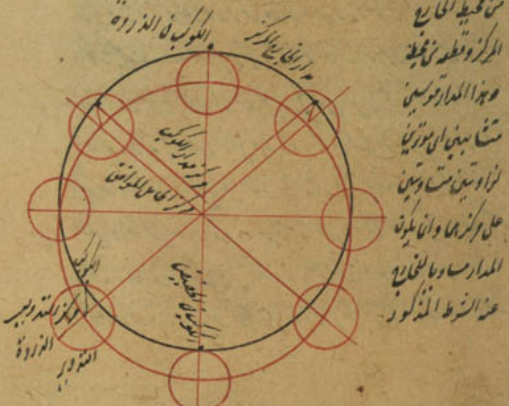 من محيط الخارج
المركز و قطعة من محيط
هذا المدار قوسين
متشابهتين اى موترتين
لزاويتين متساويتين
على مركزهما وان يكون
المدار مساويا للخارج
عند الشرط المذكور
الكوكب فى الذروة
مدار الخارج المركز
مركز مدار الكوكب
مركز الحامل الموافق
الكوكب فى الحضيض
الكوكب
مركز التدوير
الذروة
التدوير